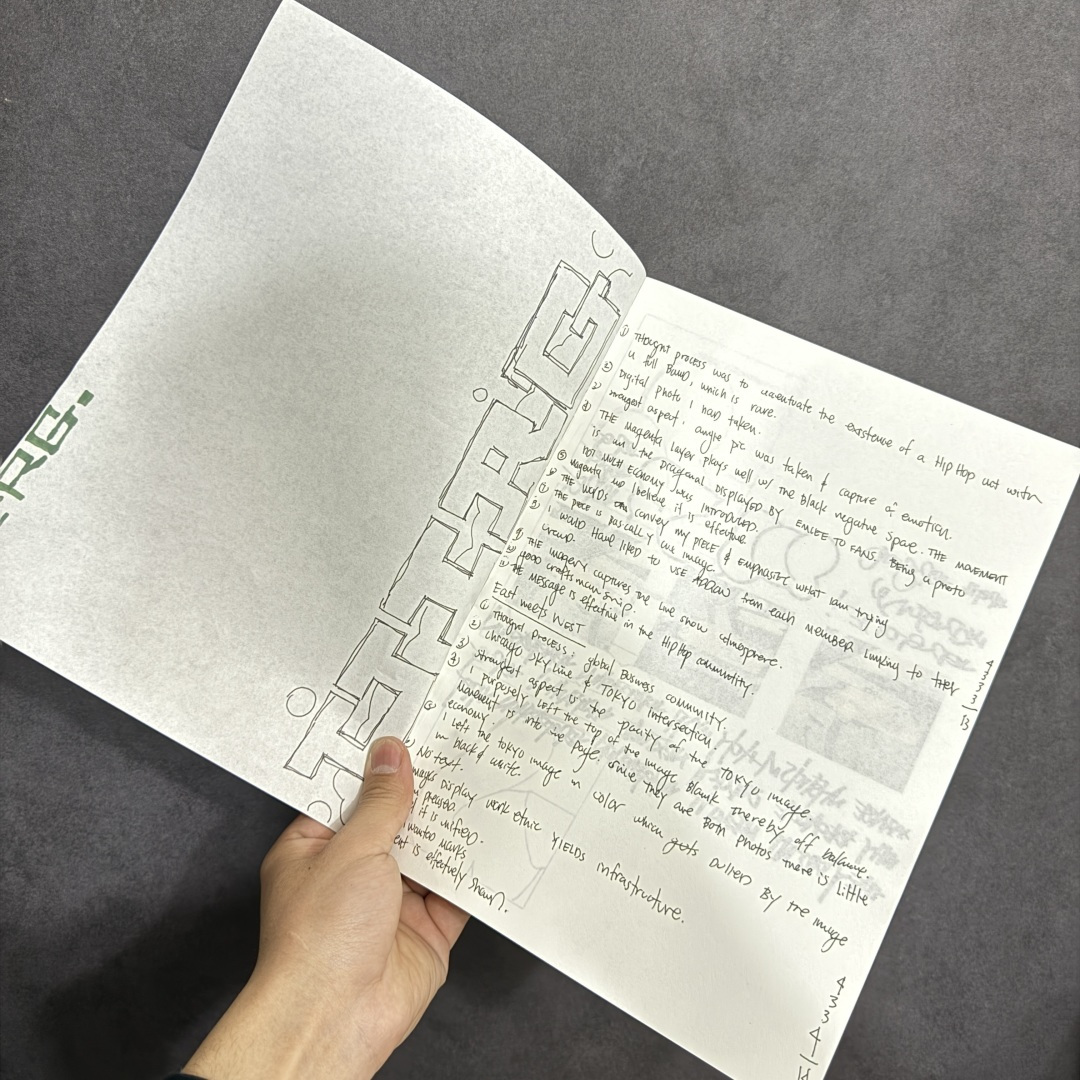 RG.
① THOUGHT PROCESS WAS to accentuate the existence of a Hip Hop act with
a full BAND, which is rare.
② Digital photo I had taken.
aspect, angle pic was taken & capture of emotion.
④ THE Magenta layer plays well w/ the Black negative space. THE MOVEMENT
is in the Diagonal DISPLAYED BY EMCEE TO FANS. Being a photo
not much Economy was introduced.
⑤ Magenta I believe it is effective.
THE WORDS convey my PIECE & EMPHASIZE what I am trying
THE piece is BASCALLY one image.
I WOULD HAVE liked to USE from each MEMBER linking to they
THE IMAGERY captures the live show atmosphere.
GOOD craftsmanship.
THE MESSAGE is effective in the Hip Hop community.
4
3
3
3
13
East meets WEST
① THOUGHT PROCESS: global Business community.
② CHICAGO SKYLINE & TOKYO intersection.
③ strongest aspect is the of the TOKYO image.
④ I purposely left the top of the image BLANK thereby off balance.
Movement is into the page, since they are BOTH photos there is little
economy.
I left the tokyo image in color which gets by the image
in black & white.
No text.
display work ethic YIELDS infrastructure.
it is unified.
wanted
is effectively shown.
4
3
3
4